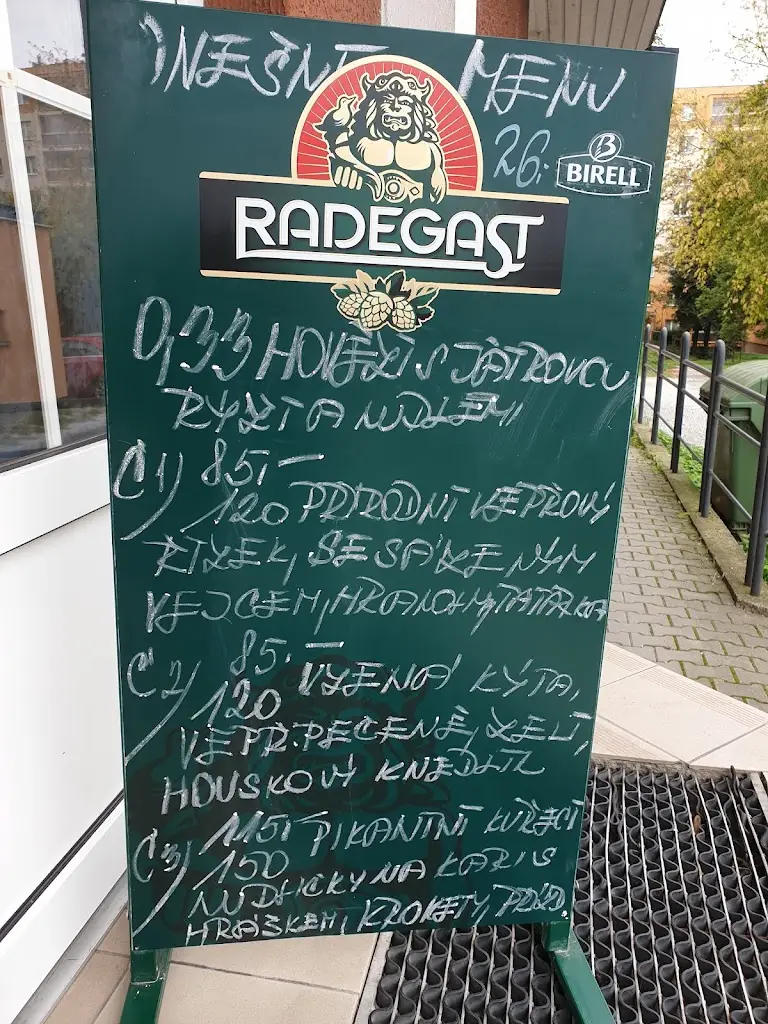 DNEŠNÍ MENU
26,-
B
BIRELL
RADEGAST
0,33 HOVĚZÍ S JÁTROVOU
RÝŽÍ A NUDLEMI
Č1) 85,-
120 PŘÍRODNÍ VEPŘOVÝ
ŘÍZEK, SE SÁZENÝM
VEJCEM, HRANOLKY, TATARKA
Č2) 85,-
120 UZENÁ KÝTA,
VEPŘ. PEČENĚ, ZELÍ,
HOUSKOVÝ KNEDLÍK
Č3) 115,- PIKANTNÍ KUŘECÍ
150
NUDLIČKY NA KARI S
HRÁŠKEM, KROKETY,